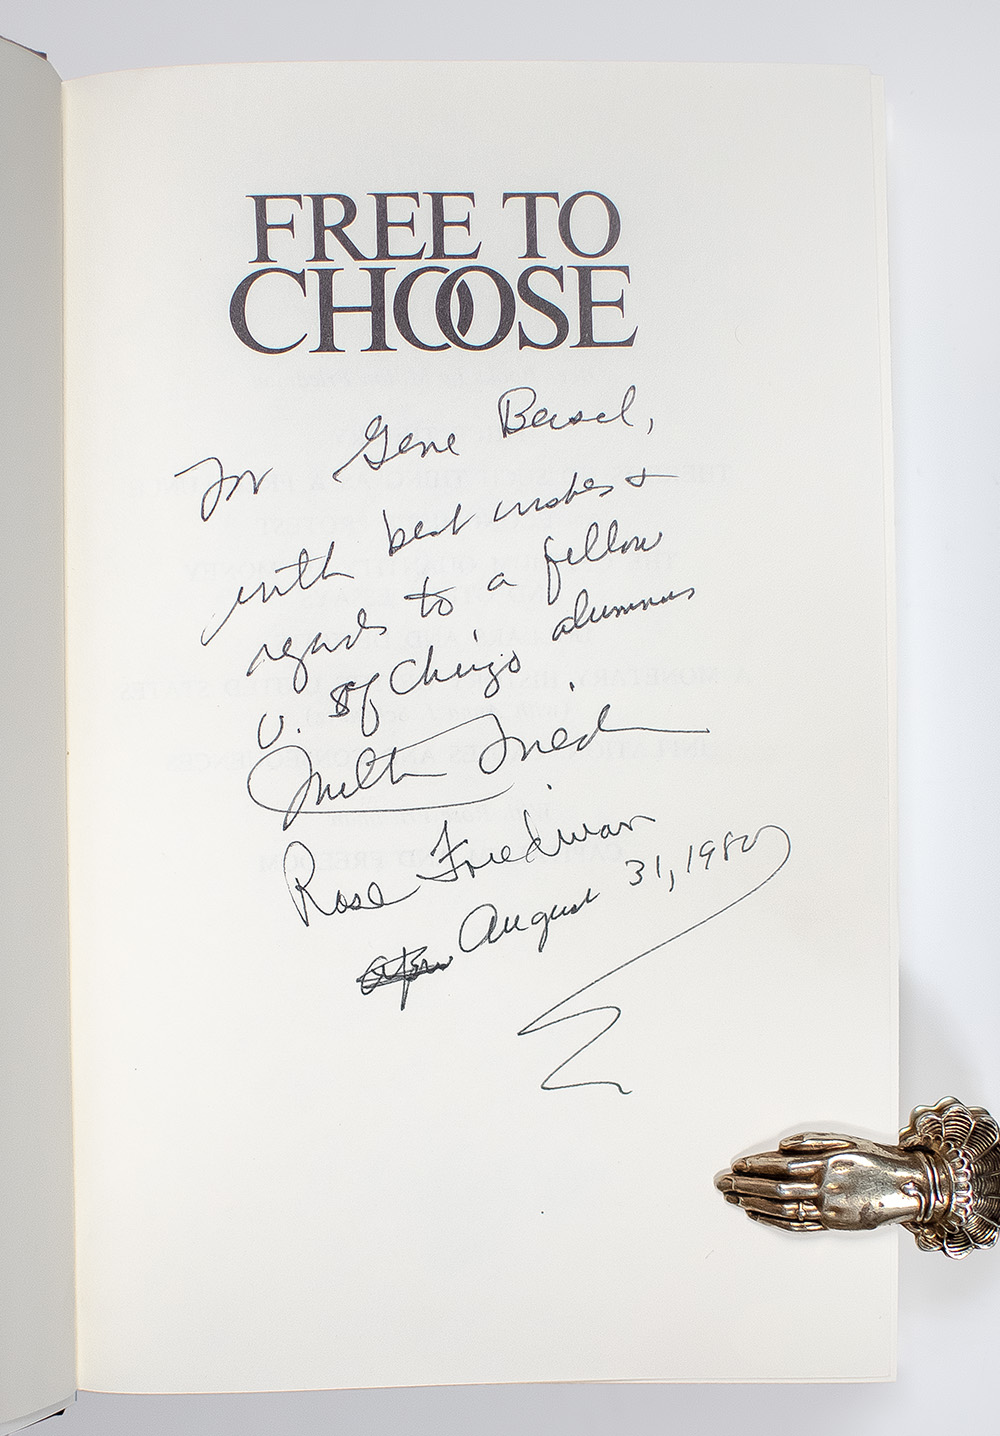 FREE TO
CHOOSE
For Gene Beisel,
with best wishes +
regards to a fellow
U. of Chicago alumnus
Milton Friedman
Rose Friedman
August 31, 1980